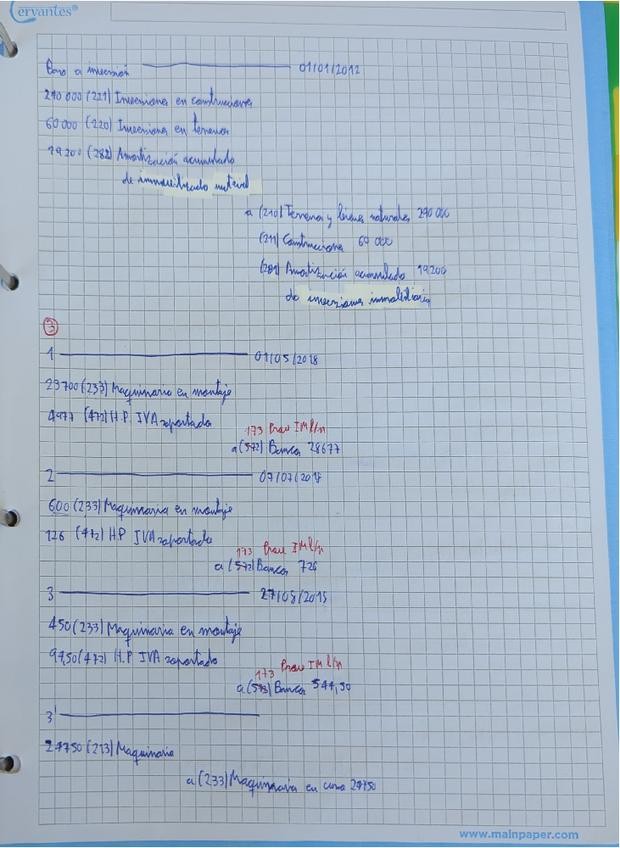 Cervantes®
Paso a inversión 01/01/2012
240 000 (221) Inversiones en construcciones
60 000 (220) Inversiones en terrenos
19.200 (282) Amortización acumulada
de inmovilizado material
a (210) Terrenos y bienes naturales 240 000
(211) Construcciones 60 000
(281) Amortización acumulada 19.200
de inversiones inmobiliaria
3
1 01/05/2018
23700 (233) Maquinaria en montaje
4977 (472) H.P. IVA soportado
173 Prov IM l/p
a (572) Bancos 28677
2 07/07/2018
600 (233) Maquinaria en montaje
126 (472) HP IVA soportado
173 Prov IM l/p
a (572) Bancos 726
3 27/08/2018
450 (233) Maquinaria en montaje
94,50 (472) H.P IVA soportado
173 Prov IM l/p
a (573) Bancos 544,50
3'
24750 (213) Maquinaria
a (233) Maquinaria en curso 24750
www.mainpaper.com